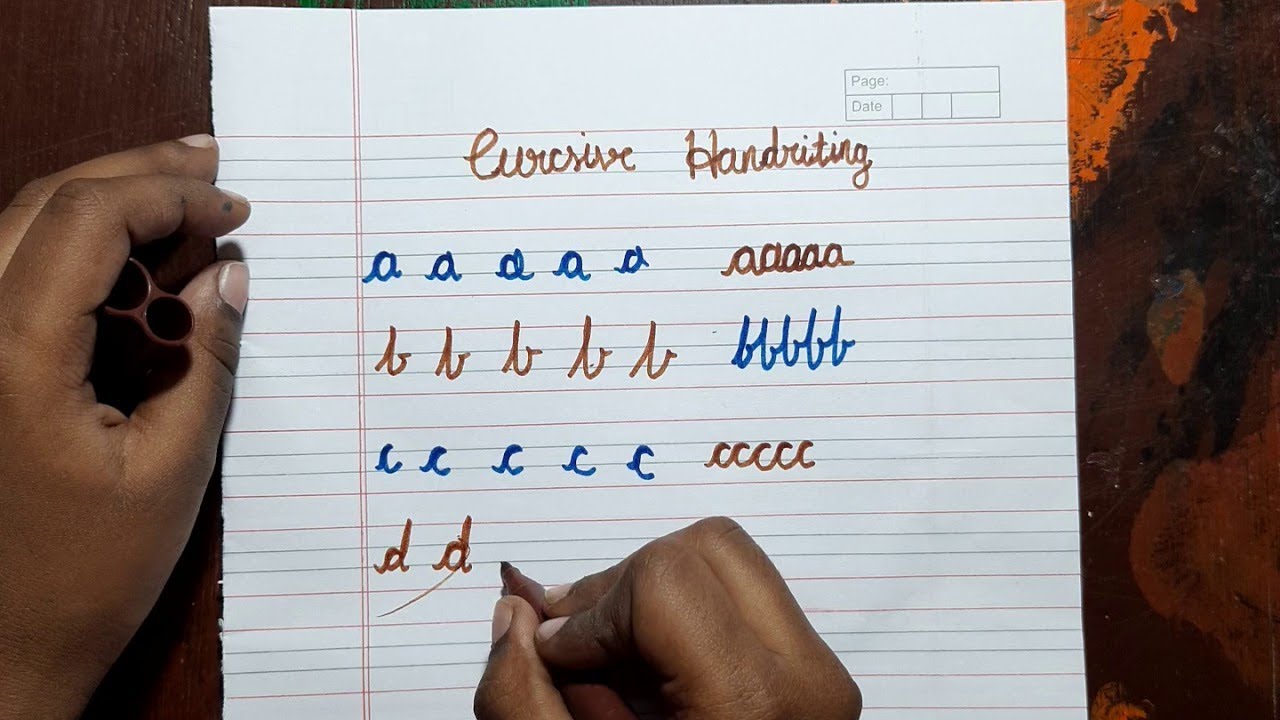 Page:
Date
Curcsive Handriting
a a a a a aaaaa
b b b b b bbbbb
c c c c c ccccc
d d